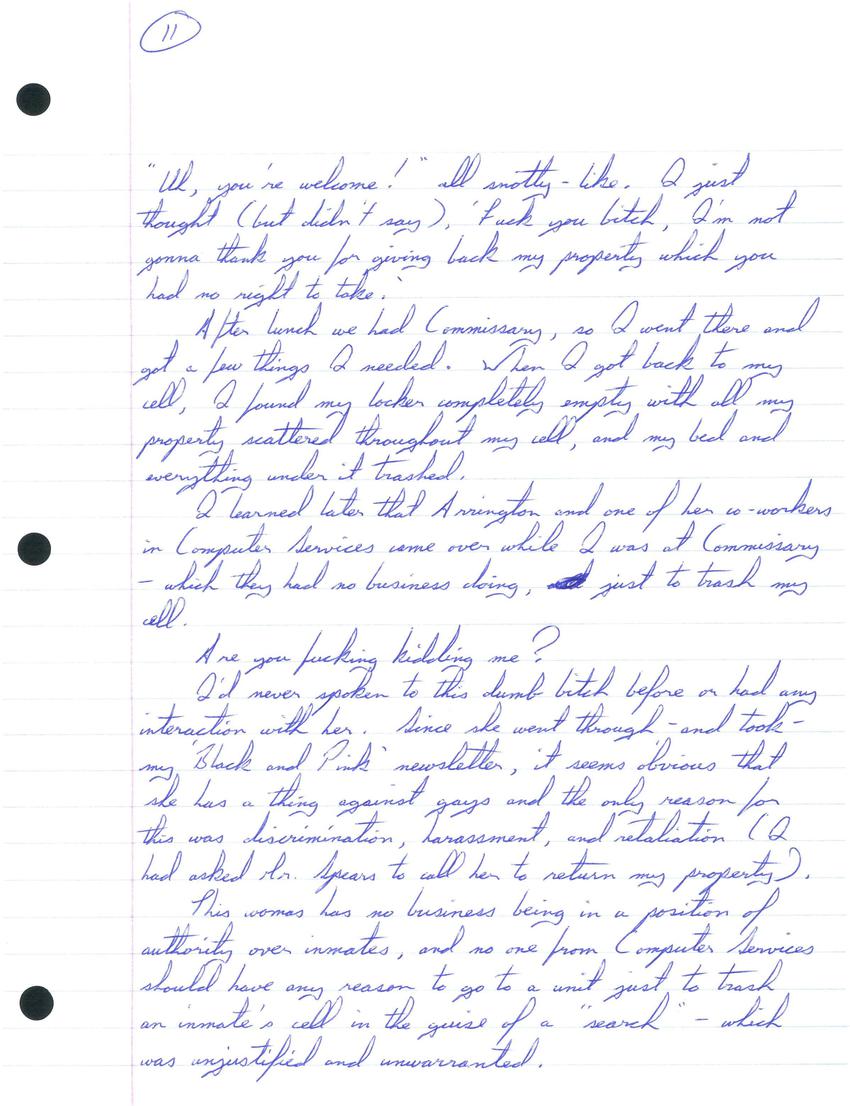 11
"Uh, you're welcome!" all snotty-like. I just
thought (but didn't say), 'Fuck you bitch, I'm not
gonna thank you for giving back my property which you
had no right to take.'
After lunch we had Commissary, so I went there and
got a few things I needed. When I got back to my
cell, I found my locker completely empty with all my
property scattered throughout my cell, and my bed and
everything under it trashed.
I learned later that Arrington and one of her co-workers
in Computer Services came over while I was at Commissary
- which they had no business doing, just to trash my
cell.
Are you fucking kidding me?
I'd never spoken to this dumb bitch before or had any
interaction with her. Since she went through -and took-
my 'Black and Pink' newsletter, it seems obvious that
she has a thing against gays and the only reason for
this was discrimination, harassment, and retaliation (I
had asked Mr. Spears to call her to return my property).
This woman has no business being in a position of
authority over inmates, and no one from Computer Services
should have any reason to go to a unit just to trash
an inmate's cell in the guise of a "search" - which
was unjustified and unwarranted.